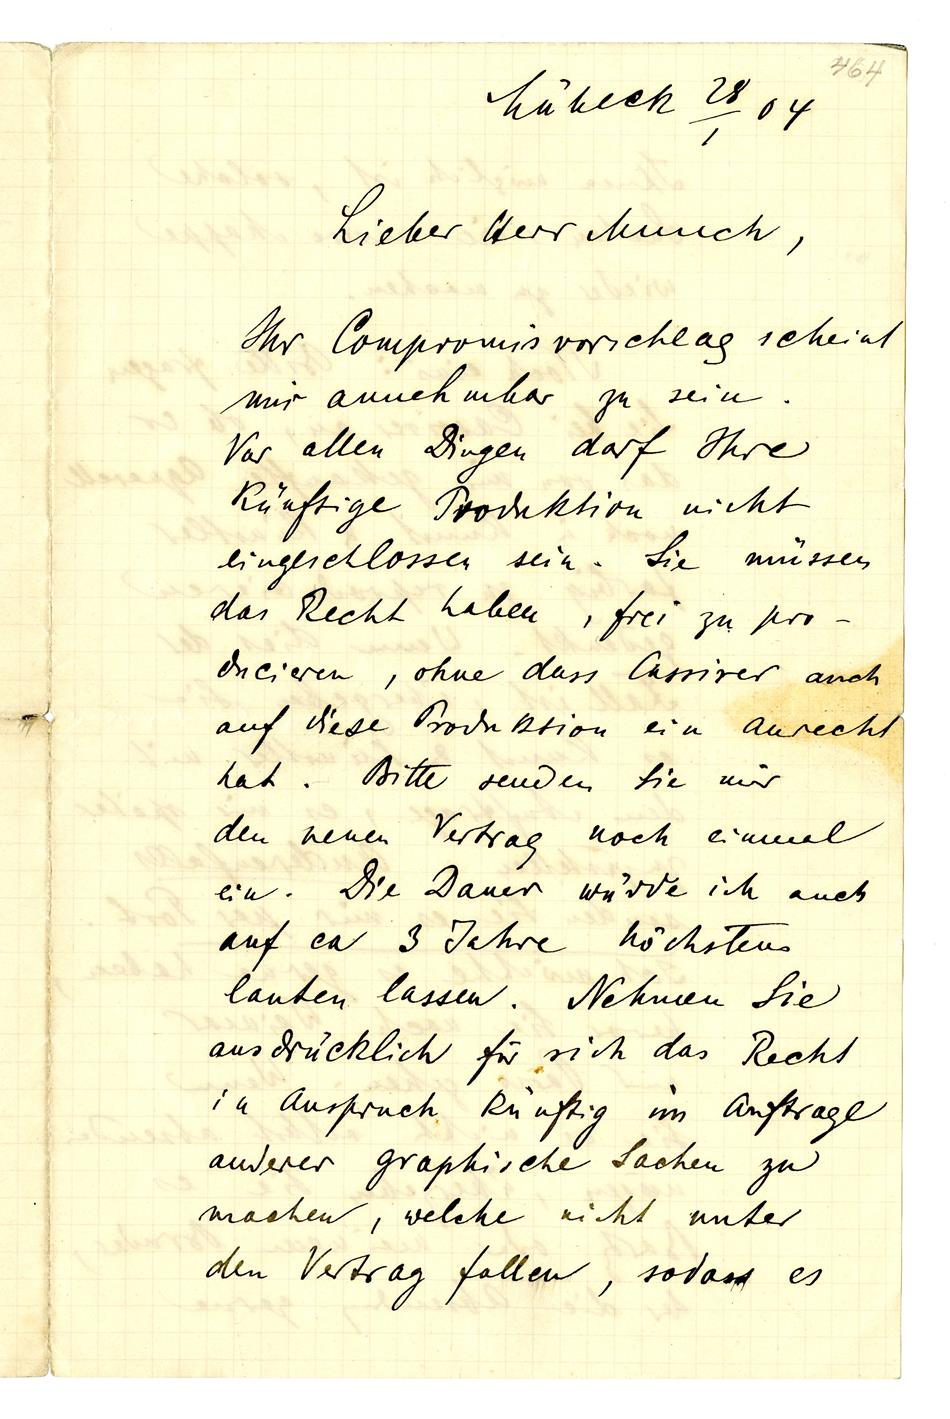 464
Lübeck 28/1 04
Lieber Herr Munch,
Ihr Compromisvorschlag scheint
mir annehmbar zu sein.
Vor allen Dingen darf Ihre
künftige Produktion nicht
eingeschlossen sein. Sie müssen
das Recht haben, frei zu pro-
ducieren, ohne dass Cassirer auch
auf diese Produktion ein Anrecht
hat. Bitte senden Sie mir
den neuen Vertrag noch einmal
ein. Die Dauer würde ich auch
auf ca 3 Jahre höchstens
lauten lassen. Nehmen Sie
ausdrücklich für sich das Recht
in Anspruch künftig im Auftrage
anderer graphische Sachen zu
machen, welche nicht unter
den Vertrag fallen, sodass es